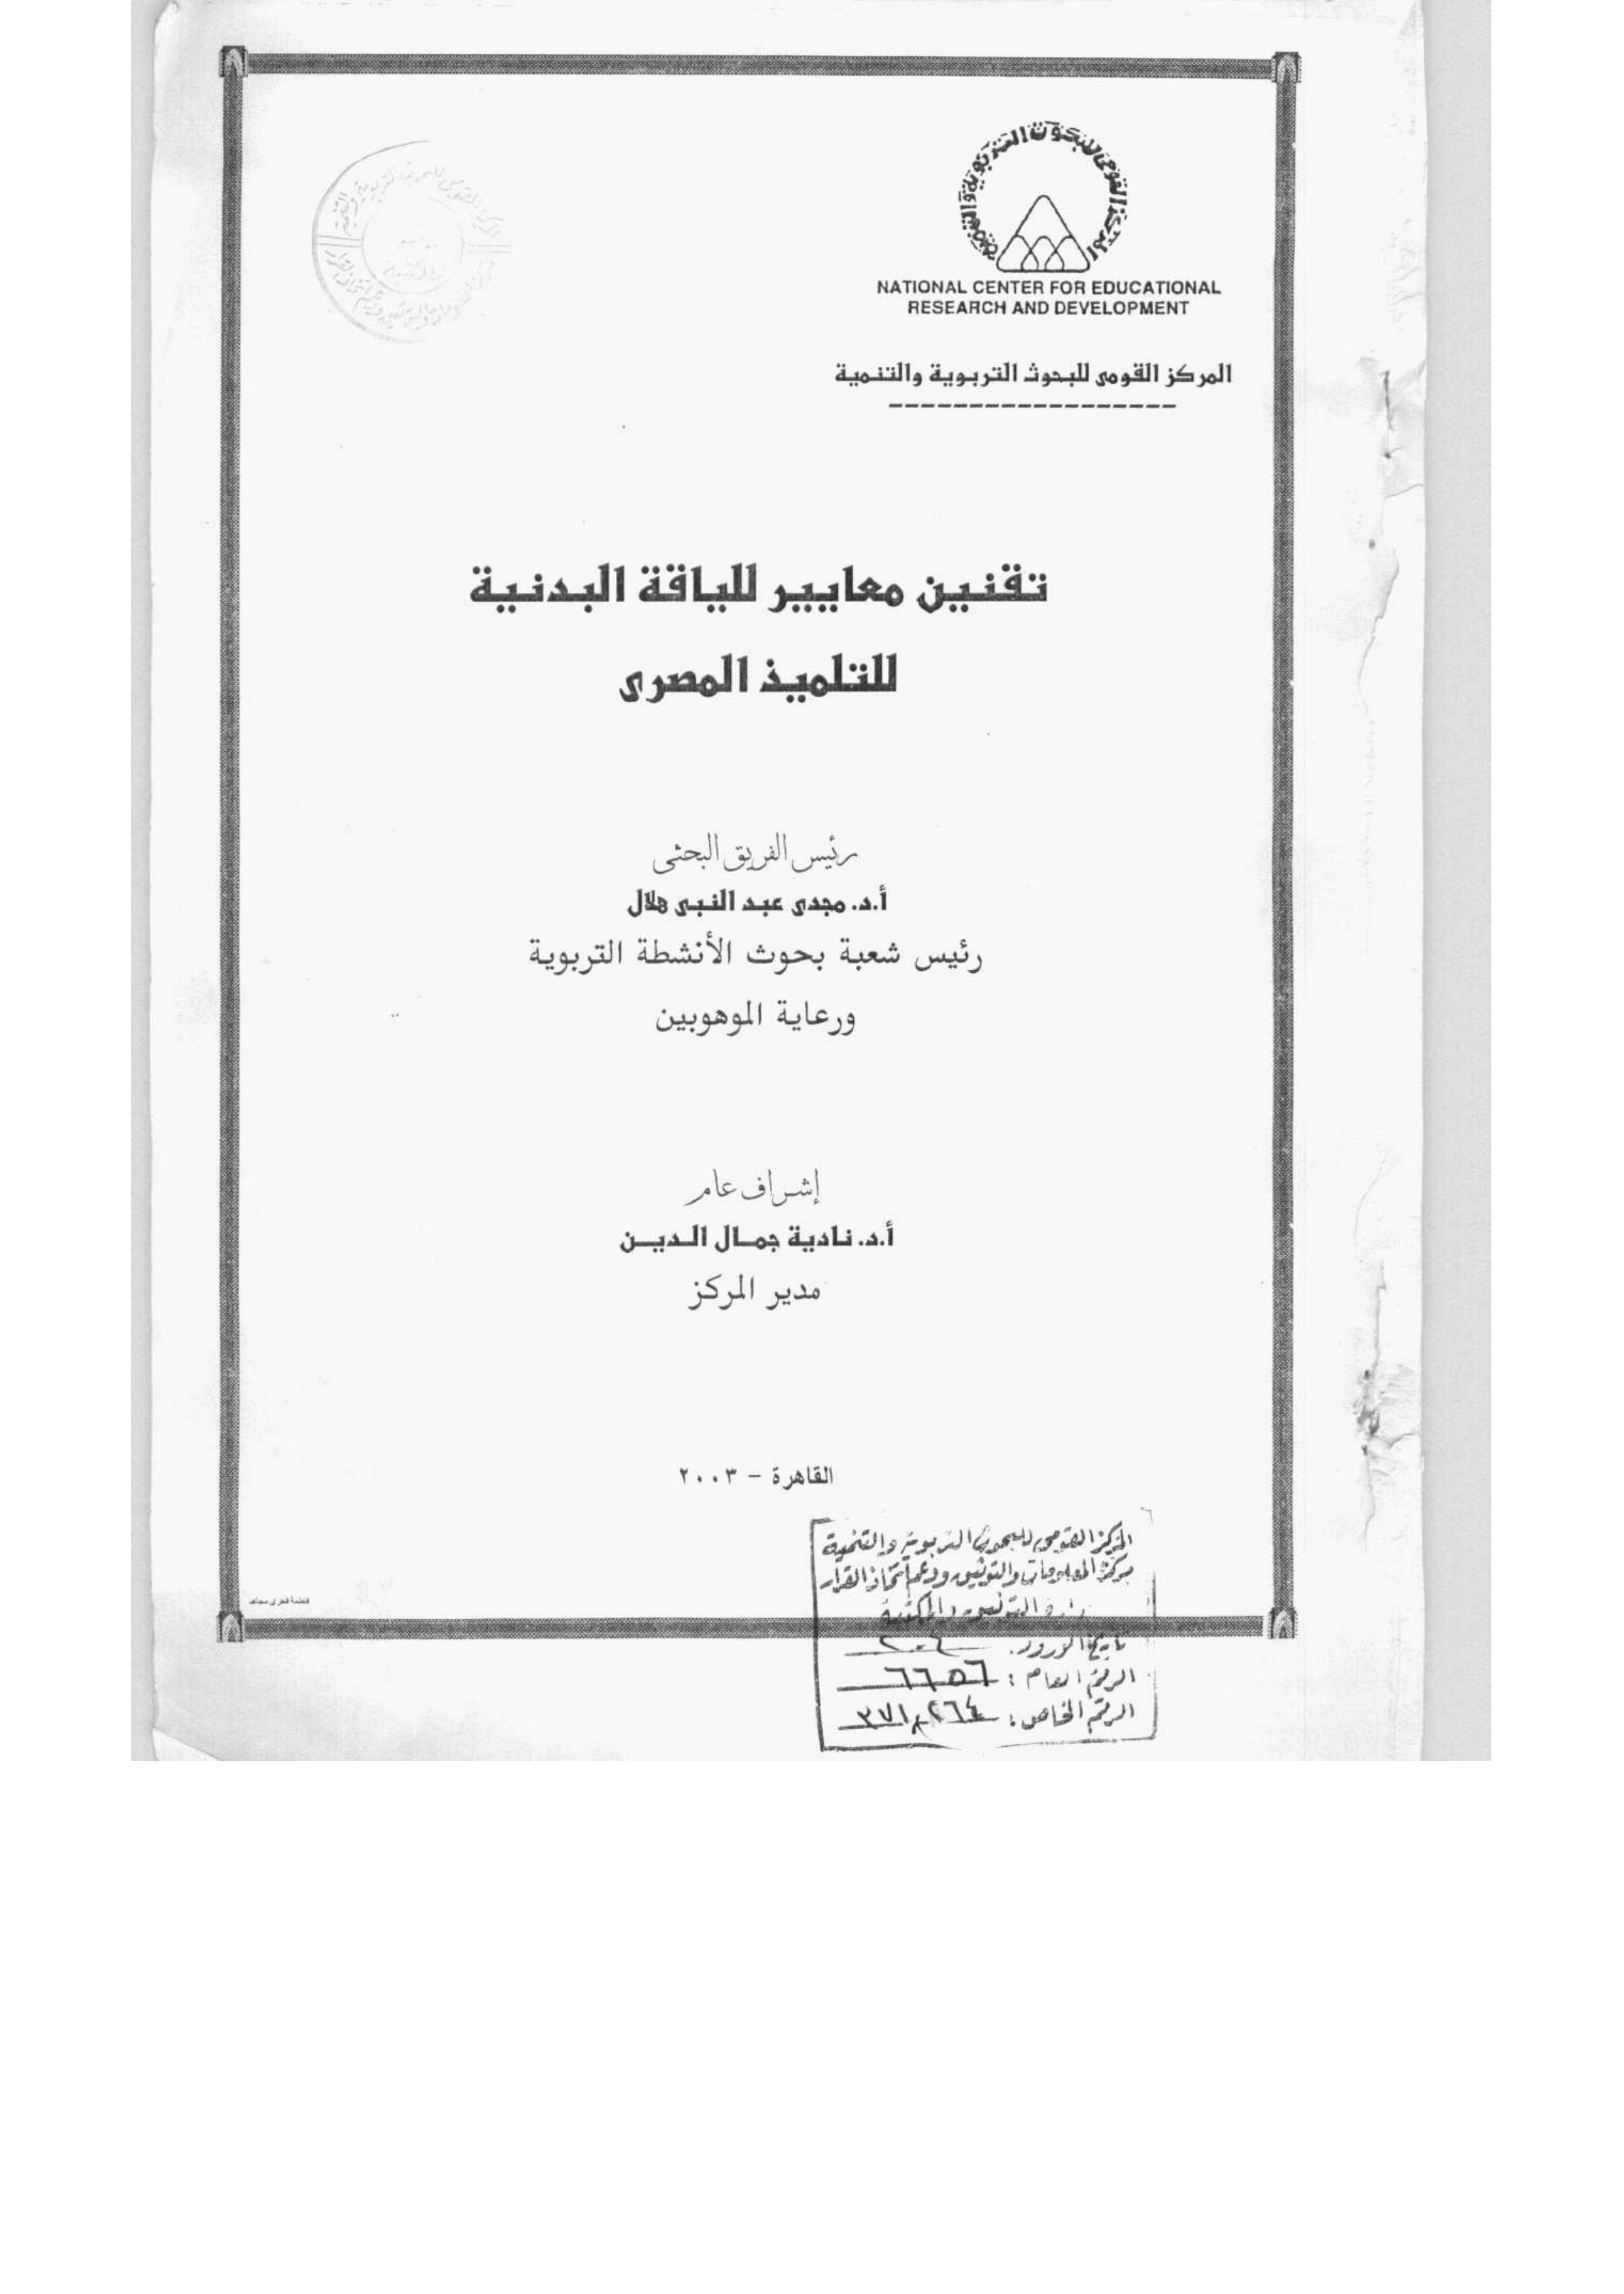 المركز القومى للبحوث التربوية والتنمية
NATIONAL CENTER FOR EDUCATIONAL
RESEARCH AND DEVELOPMENT
المركز القومى للبحوث التربوية والتنمية
تقنين معايير للياقة البدنية
للتلميذ المصرى
رئيس الفريق البحثى
أ.د. مجدى عبد النبى هلال
رئيس شعبة بحوث الأنشطة التربوية
ورعاية الموهوبين
إشراف عام
أ.د. نادية جمال الدين
مدير المركز
القاهرة – ٢٠٠٣
المركز القومى للبحوث التربوية والتنمية
مركز المعلومات والتوثيق ودعم اتخاذ القرار
التوثيق والمكتبة
تاريخ الورود:
الرقم العام : ٦٦٥٦
الرقم الخاص : ٣٧١٫٢٦٤